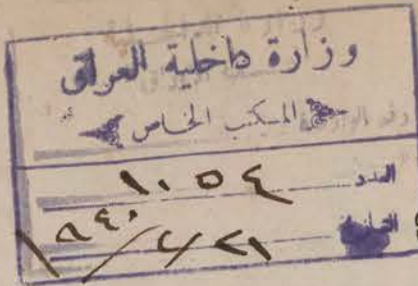 وزارة داخلية العراق
المكتب الخاص
العدد ١٠٥٤
٢١/٤/١٩٤٠